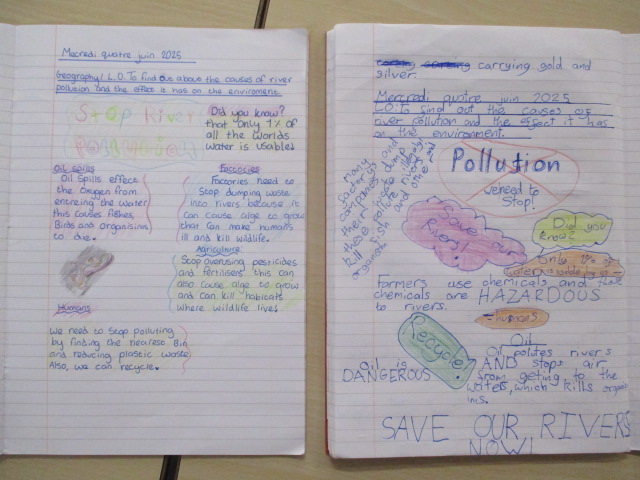 Macredi quatre juin 2025
Geography L.O. To find out above the causes of river
pollution and the effect it has on the enviroment.
Stop River
Pollution
Did you know?
that only 1% of
all the worlds
water is usable
Oil spills
Oil Spills effect
the Oxygen from
entreing the Water
this causes fishes,
Birds and Organisims
to die.
Factories
Factories need to
Stop dumping waste
into rivers because it
can cause alge to grow
that can make humans
ill and kill wildlife.
Agriculture
Stop overusing pesticides
and fertilisers this can
also cause alge to grow
and can kill habitats
where wildlife lives
Humans
We need to Stop polluting
by finding the nearest Bin
and reducing plastic waste.
Also, we can recycle.
carrying gold and
silver.
Mercredi quatre juin 2025
L.O. To find out the causes of
river pollution and the effect it has
on the environment.
many
factor
companies
their
kill these
organisi
Pollution
we need to
Stop!
Save our
Rivers!
Did you
know?
only 1% of
water
Farmers use chemicals and those
chemicals are HAZARDOUS
to rivers.
- humans
Recycle!
Oil
Oil polites rivers
AND stops air
from geting to the
waters, which kills organ
isms.
Oil is
DANGEROUS
SAVE OUR RIVERS
NOW!